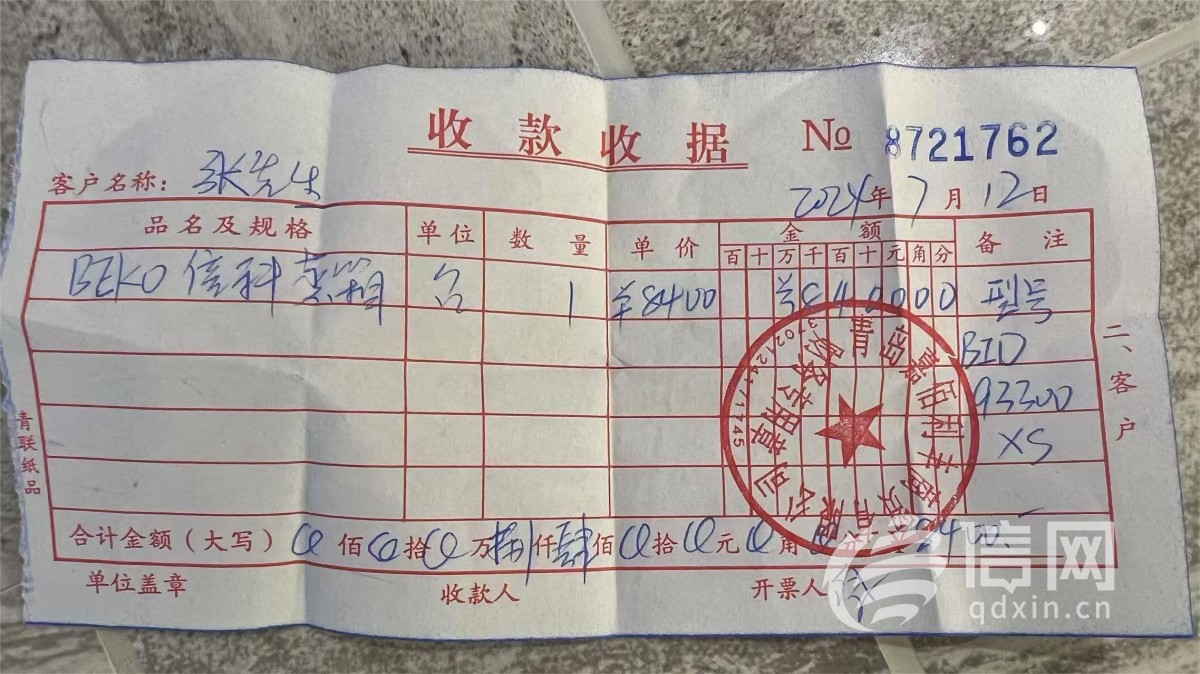 收款收据 No 8721762
客户名称：张先生 2024年7月12日
品名及规格 单位 数量 单价 金额 备注
百十万千百十元角分
BEKO 倍科蒸箱 台 1 ¥8400 ¥840000 型号
BID
93300
XS
二、客户
青联纸品
3702124111745
财务专用章
合计金额（大写） 0佰0拾0万捌仟肆佰0拾0元0角0分 8400.-
单位盖章 收款人 开票人
信网
qdxin.cn